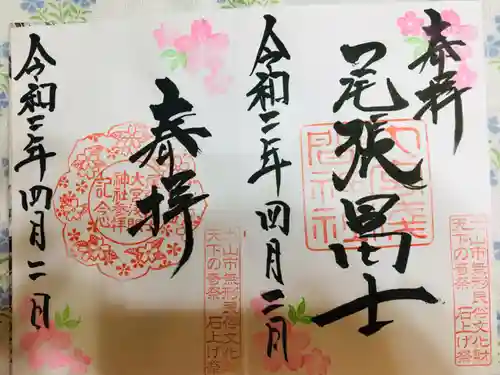 奉拝
尾張冨士
令和三年四月二日
犬山市無形民俗文化財
天下の奇祭 石上げ祭
奉拝
大宮浅間
神社参拝
記念
令和三年四月二日
犬山市無形民俗文化財
天下の奇祭 石上げ祭